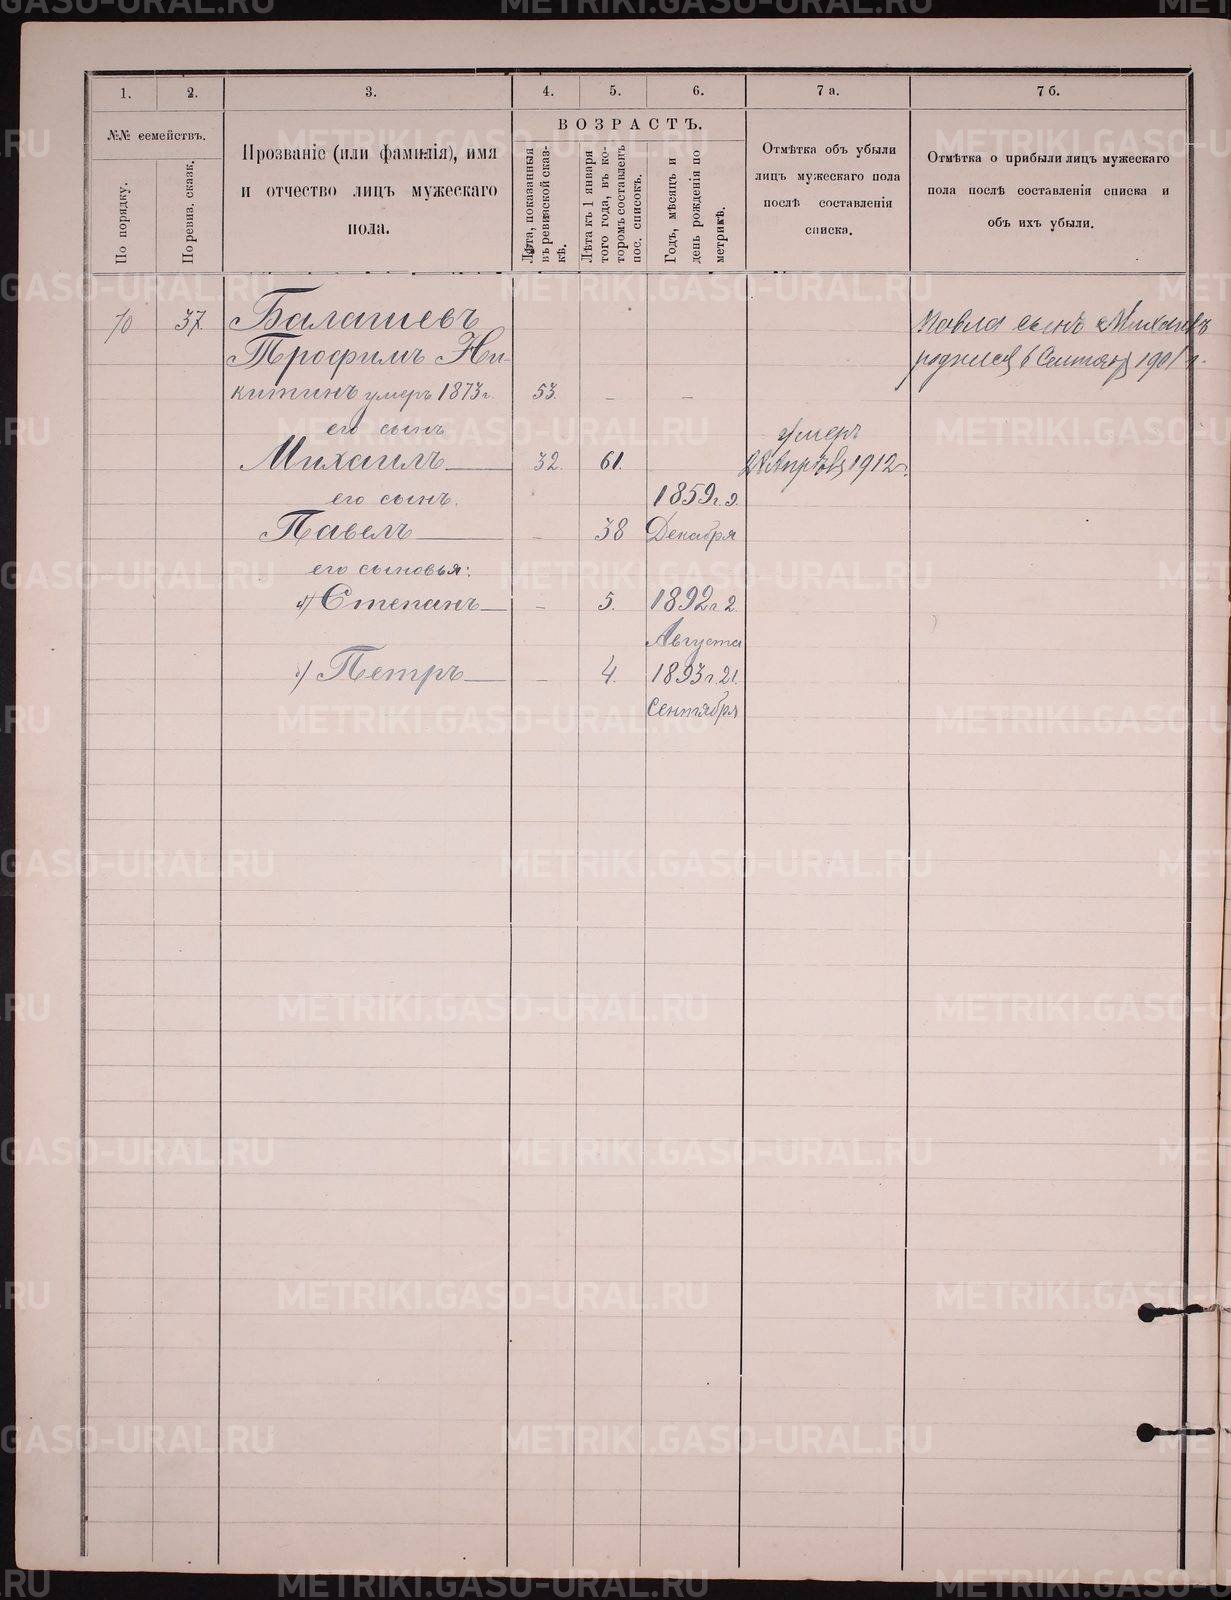 1.
2.
3.
4.
5.
6.
7 а.
7 б.
№№ семействъ.
По порядку.
По ревиз. сказк.
Прозваніе (или фамилія), имя
и отчество лицъ мужескаго
пола.
ВОЗРАСТЪ.
Лѣта, показанныя
въ ревизской сказ-
кѣ.
Лѣта къ 1 января
того года, въ ко-
торомъ составленъ
пос. списокъ.
Годъ, мѣсяцъ и
день рожденія по
метрикѣ.
Отмѣтка объ убыли
лицъ мужескаго пола
послѣ составленія
списка.
Отмѣтка о прибыли лицъ мужескаго
пола послѣ составленія списка и
объ ихъ убыли.
70 37. Балашевъ
Трофимъ Ни-
китинъ умеръ 1873 г. 53. – –
его сынъ
Михаилъ 32. 61.
его сынъ. 1859 г. 9.
Павелъ – 38 Декабря
его сыновья:
а) Степанъ – 5. 1892 г. 2.
Августа
б) Петръ – 4. 1893 г. 21.
Сентября
умеръ
28 Апрѣля 1912 г.
Павла сынъ Михаилъ
родился 6 Сентября 1901 г.
METRIKI.GASO-URAL.RU